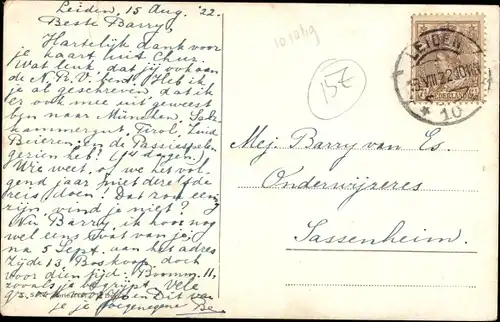 Leiden, 15 Aug. '22.
Beste Barry,
Hartelijk dank voor
je kaart uit Chur.
Wat leuk, dat jij ook aan
de N. R. V. bent. Heb ik
je al geschreven, dat ik
er ook mee uit geweest
ben naar München, Salz-
kammergut, Tirol, Zuid
Beieren, en de Passiespelen
gezien heb! 14 dagen.
Wie weet, of we het vol-
gend jaar niet dezelfde
reis doen! Dat zou een
zijn, vind je niet?
Nu Barry ik hoor nog
wel eens wat van je,
na 5 Sept. aan het adres
Zijde 13 Boskoop, doch
voor dien tijd: Boomm. 11,
zooals je begrijpt. Vele
Dit van
je je toegenegene
10 10hg
15E
LEIDEN
VIII 22
* 10
NEDERLAND
Mej. Barry van Es.
Onderwijzeres
Sassenheim.